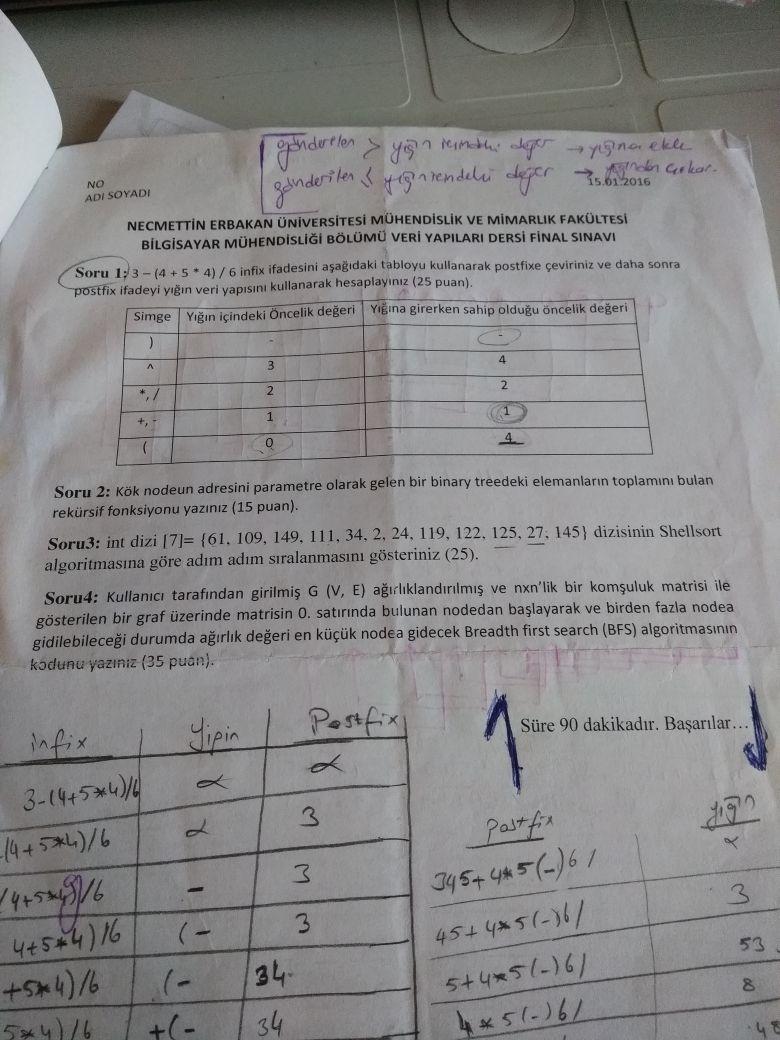 gönderilen > yığın içindeki değer → yığına ekle
gönderilen ≤ yığın içindeki değer → yığından çıkar.
NO
ADI SOYADI
15.01.2016
NECMETTİN ERBAKAN ÜNİVERSİTESİ MÜHENDİSLİK VE MİMARLIK FAKÜLTESİ
BİLGİSAYAR MÜHENDİSLİĞİ BÖLÜMÜ VERİ YAPILARI DERSİ FİNAL SINAVI
Soru 1: 3 – (4 + 5 * 4) / 6 infix ifadesini aşağıdaki tabloyu kullanarak postfixe çeviriniz ve daha sonra
postfix ifadeyi yığın veri yapısını kullanarak hesaplayınız (25 puan).
Simge Yığın içindeki Öncelik değeri Yığına girerken sahip olduğu öncelik değeri
) - -
^ 3 4
*, / 2 2
+, - 1 1
( 0 4
Soru 2: Kök nodeun adresini parametre olarak gelen bir binary treedeki elemanların toplamını bulan
rekürsif fonksiyonu yazınız (15 puan).
Soru3: int dizi [7]= {61, 109, 149, 111, 34, 2, 24, 119, 122, 125, 27, 145} dizisinin Shellsort
algoritmasına göre adım adım sıralanmasını gösteriniz (25).
Soru4: Kullanıcı tarafından girilmiş G (V, E) ağırlıklandırılmış ve nxn'lik bir komşuluk matrisi ile
gösterilen bir graf üzerinde matrisin 0. satırında bulunan nodedan başlayarak ve birden fazla nodea
gidilebileceği durumda ağırlık değeri en küçük nodea gidecek Breadth first search (BFS) algoritmasının
kodunu yazınız (35 puan).
Süre 90 dakikadır. Başarılar…
infix Yığın Postfix
3-(4+5*4)/6 α α
-(4+5*4)/6 α 3
(4+5*4)/6 - 3
4+5*4)/6 (- 3
+5*4)/6 (- 34
5*4)/6 +(- 34
Postfix yığın
345+4*5(-)6/ α
45+4*5(-)6/ 3
5+4*5(-)6/ 53
4*5(-)6/ 8
48